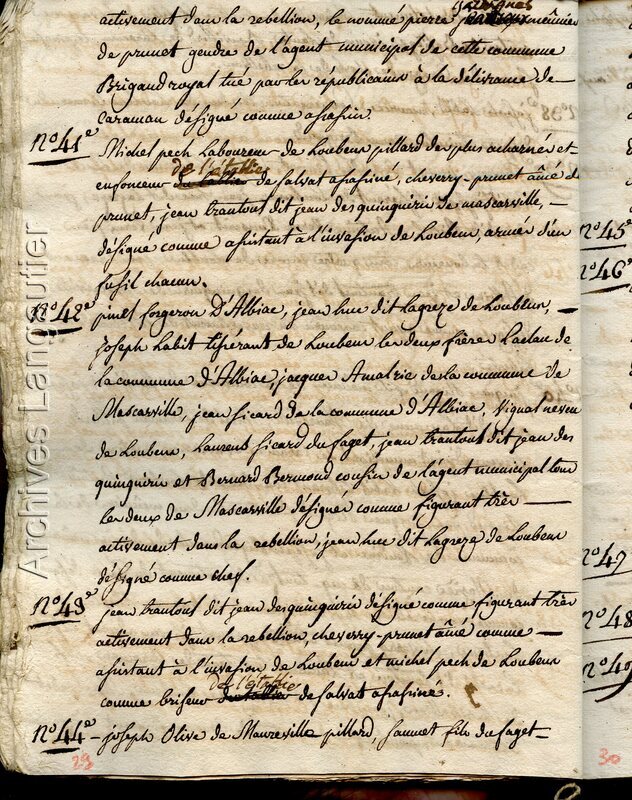 activement dans la rebellion, le nommé pierre meûnier
de prunet gendre de l'agent municipal de cette commune
Brigand royal tué par les républicains à la délivrance de
caraman désigné comme assassin.
N° 41e Michel pech Laboureur de Loubens pillard des plus acharnés et
de l'étable
enfonceur de salvat assassiné, cheverry-prunet âiné de
prunet, jean trantout dit jean desquinquiris de mascarville,
désigné comme assistant à l'invasion de Loubens, armés d'un
fusil chacun.
N° 42e pinel forgeron D'Albiac, jean huc dit Lagreze de Loubens,
joseph Labit tisserant de Loubens les deux frères Laclau de
la commune d'Albiac, jacques Amalric de la commune de
Mascarville, jean sicard de la commune d'Albiac, Vignal neveu
de Loubens, Laurens sicard du faget, jean trantout dit jean des
quinquiris et Bernard Bermond cousin de l'agent municipal tous
les deux de Mascarville désignés comme figurant très
activement dans la rebellion, jean huc dit Lagreze de Loubens
désigné comme chef.
N° 43e jean trantout dit jean desquinquiris désigné comme figurant très
activement dans la rebellion, cheverry-prunet âiné comme
assistant à l'invasion de Loubens et michel pech de Loubens
de l'étable
comme briseur de salvat assassiné.
N° 44e joseph Olive de Maureville pillard, fils du faget
29
N° 45e
N° 46e
N° 47
N° 48
N° 49
30
Archives Langautier